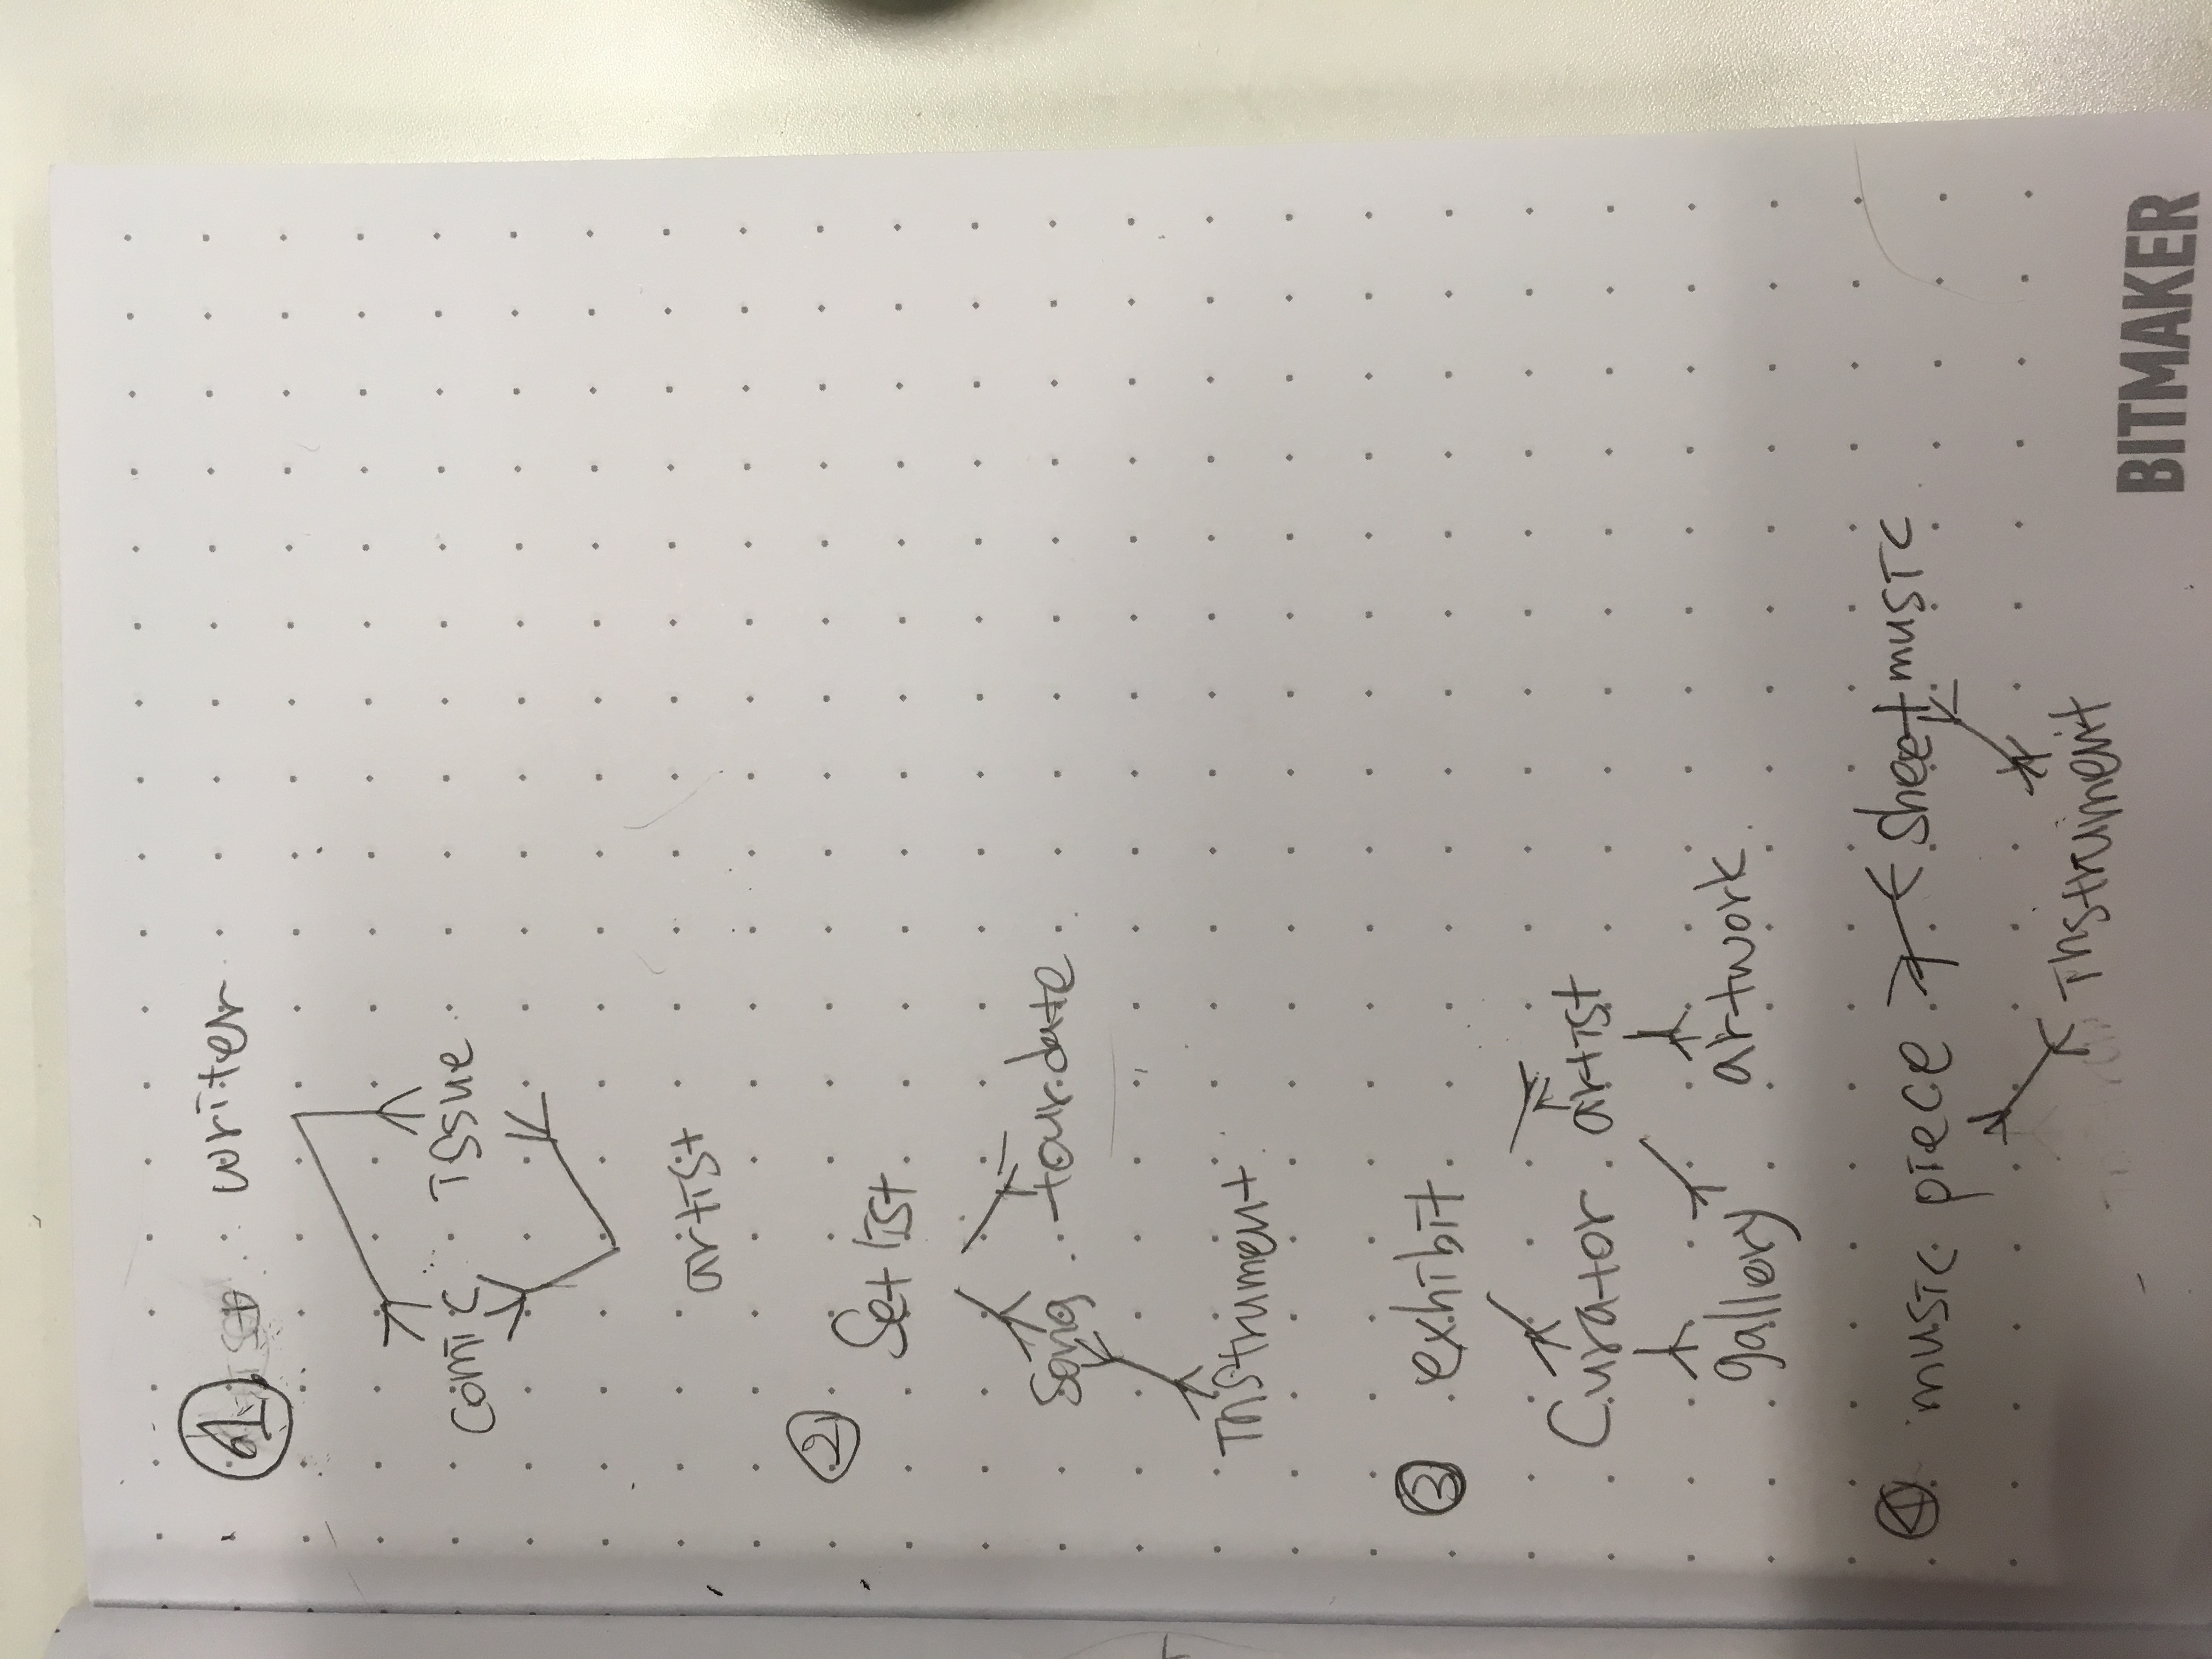 1. writer
comic issue
artist
2
Set list
song tour date
Instrument
3 exhibit
Curator artist
gallery artwork
4 music piece sheet music
Instrument
BITMAKER